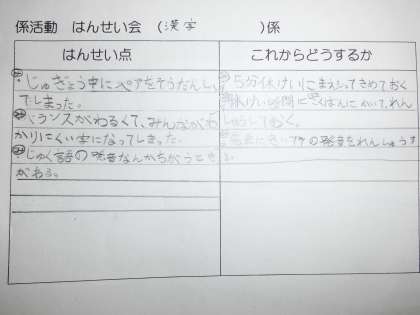 係活動 はんせい会 (漢字 )係
はんせい点
これからどうするか
じゅぎょう中にペアをそうだんし
てしまった。
バランスがわるくて、みんながわ
かりにくい字になってしまった。
じゅく語の発音なんかちがうとき
がある。
5分休けいにまえもってきめておく
休けい時間に こくばんにかいて、れん
しゅうしておく。
の発音をれんしゅうす
る